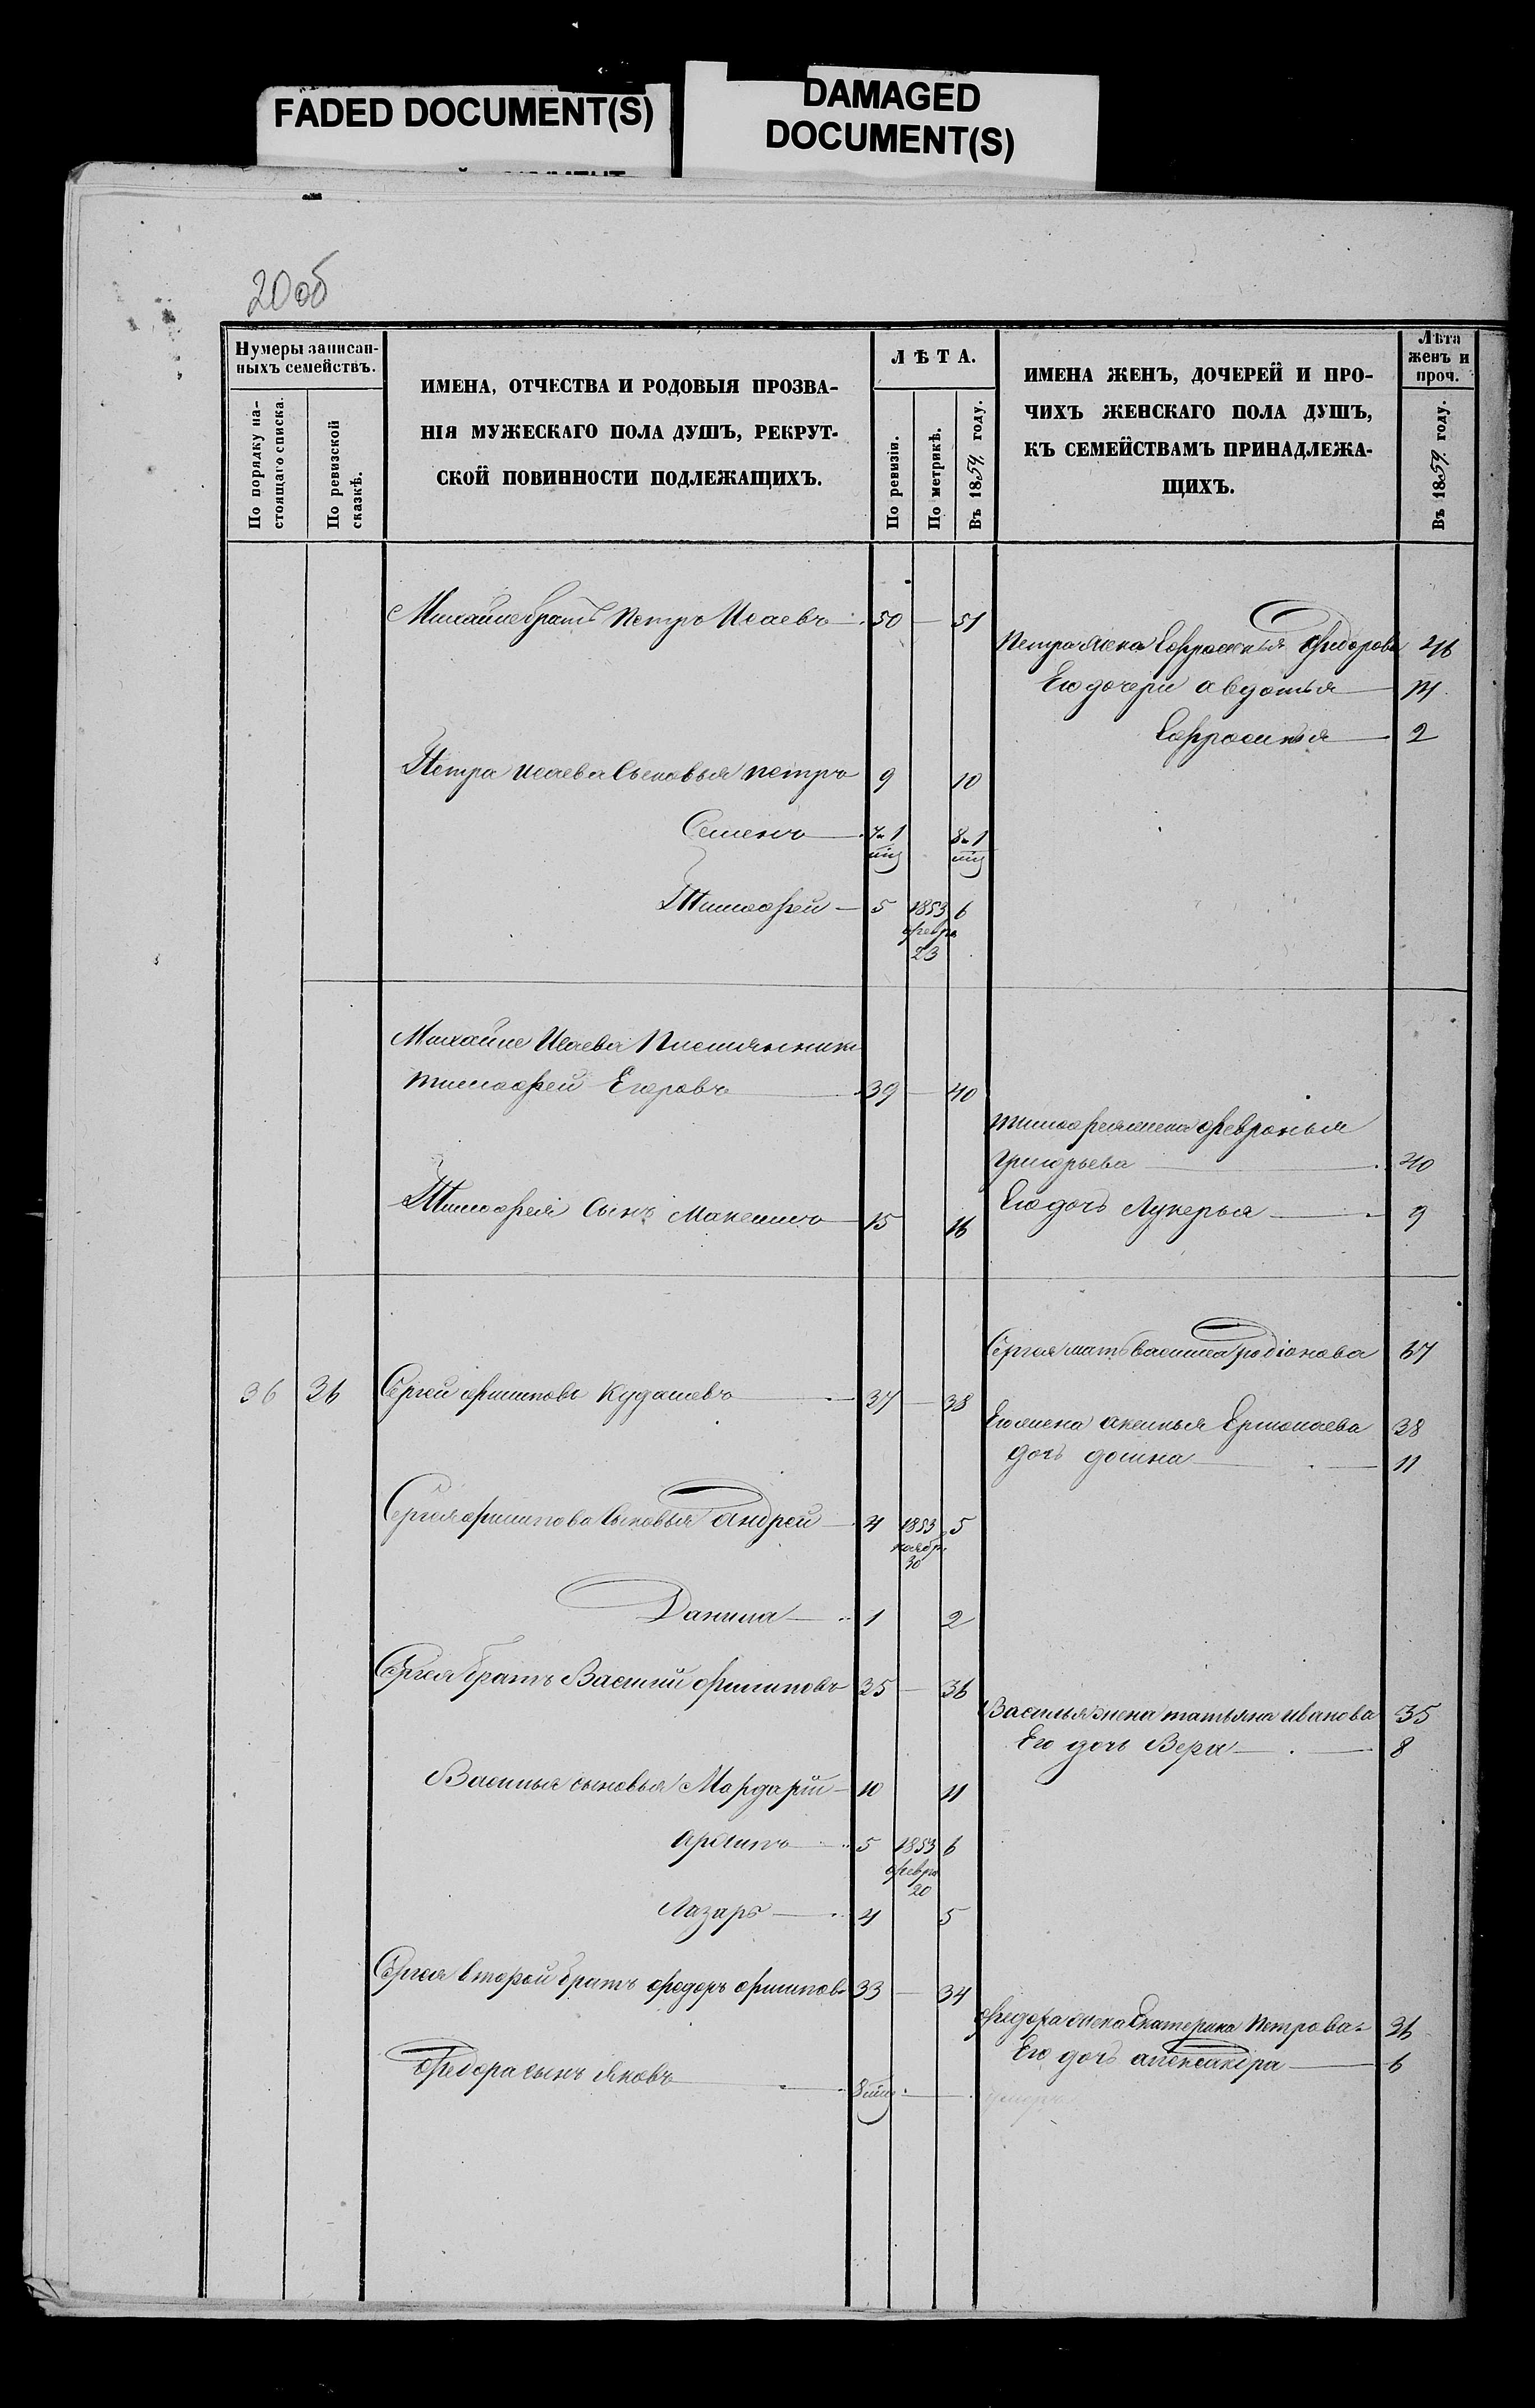 FADED DOCUMENT(S)
DAMAGED
DOCUMENT(S)
20 об
Нумеры записан-
ныхъ семействъ.
По порядку на-
стоящаго списка.
По ревизской
сказкѣ.
ИМЕНА, ОТЧЕСТВА И РОДОВЫЯ ПРОЗВА-
НІЯ МУЖЕСКАГО ПОЛА ДУШЪ, РЕКРУТ-
СКОЙ ПОВИННОСТИ ПОДЛЕЖАЩИХЪ.
ЛѢТА.
По ревизіи.
По метрикѣ.
Въ 1859 году.
ИМЕНА ЖЕНЪ, ДОЧЕРЕЙ И ПРО-
ЧИХЪ ЖЕНСКАГО ПОЛА ДУШЪ,
КЪ СЕМЕЙСТВАМЪ ПРИНАДЛЕЖА-
ЩИХЪ.
Лѣта
женъ и
проч.
Въ 1859 году.
Михайле братъ Петръ Исаевъ 50 — 51
Петра жена Ефросинья Федорова 46
Его дочери авдотья 14
Ефросинья 2
Петра Исаева Сыновья петръ 9 10
Семенъ 7 и 1 8 и 1
Тимофей 5 1853 6
февра
23
Михайле Исаева Племянникъ
тимофей Егоровъ 39 — 40
тимофея жена февронья
григорьева 40
Тимофея Сынъ Максимъ 15 16
Его дочь Лукерья 9
Сергея мать василиса родіонова 67
36 26 Сергей филиповъ Кудашевъ 37 — 38
Его жена аксинья Ермолаева 38
дочь домна 11
Сергея филипова Сыновья андрей 4 1853 5
ноябр
30
Данила 1 2
Сергея братъ Василий филиповъ 35 — 36
Василья жена татьяна иванова 35
Его дочь Вера 8
Василья сыновья Мардарій 10 11
архипъ 5 1853 6
февра
20
Лазарь 4 5
Сергея второй братъ федоръ филиповъ 33 — 34
федора жена Екатерина Петрова 36
Его дочь александра 6
федора сынъ яковъ 8